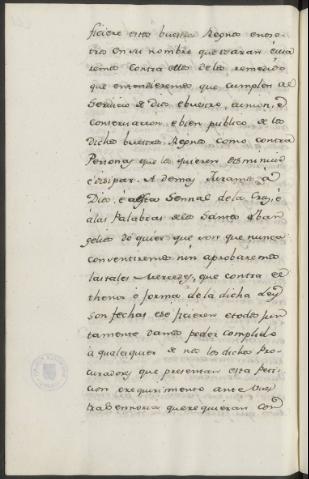 ficiere estos buestros Regnos e nosotros
en su nombre que usaran e usa
remos contra ellos de los remedios
que entendieremos que cumplen al
Servicio de Dios, e buestro, e union, e
conservacion, e bien publico de los
dichos buestros Regnos como contra
Personas que los quieren disminuir
e disipar. A demas Juramos a
Dios, e a esta Sennal de la Cruz, e
a las Palabras de los Santos Eban
gelios do quier que son que nunca
consentiremos nin aprobaremos
las tales Mercedes, que contra el
thenor e forma de la dicha Ley
son fechas, eso ficieren e todos jun
tamente damos poder complido
a qualesquier de nos los dichos Pro-
curadores que presentan esta Peti-
cion e requirimento ante Vues
tra Sennoria que requieran con